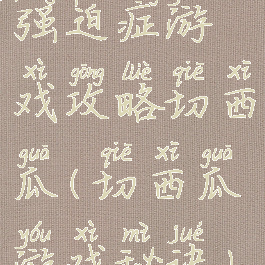 强迫症游
xì gōng lüè qiē xī
戏攻略切西
guā qiē xī guā
瓜(切西瓜
yóu xì mì jué
游戏秘诀)